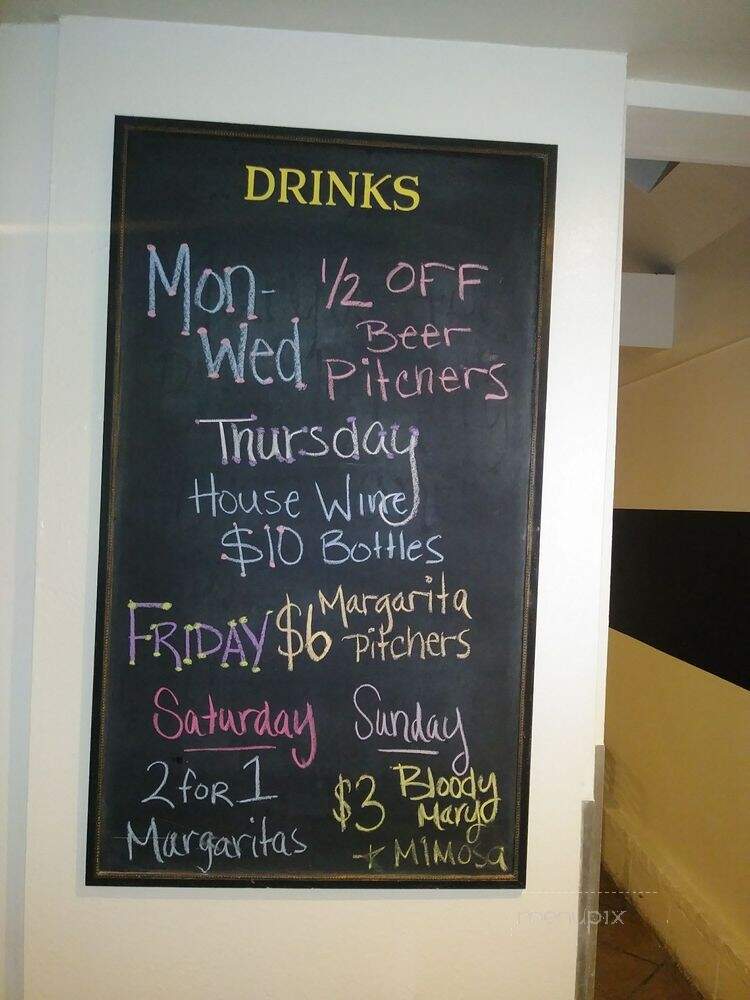 DRINKS
Mon- 1/2 OFF
Wed Beer
Pitchers
Thursday
House Wine
$10 Bottles
FRIDAY $6 Margarita
Pitchers
Saturday
2 FOR 1
Margaritas
Sunday
$3 Bloody
Mary
+ MIMOSA
menupix